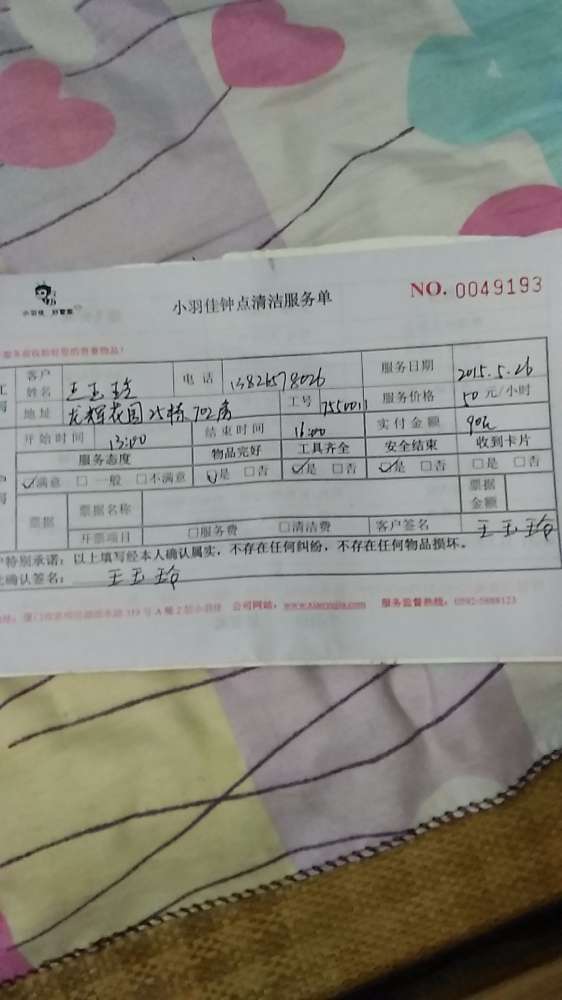 小羽佳 好管家
小羽佳钟点清洁服务单
NO. 0049193
客户姓名 王玉玲 电话 13826578026 服务日期 2015.5.26
地址 龙辉花园25栋702房 工号 755001 服务价格 50元/小时
开始时间 13:00 结束时间 16:00 实付金额 90元
服务态度 物品完好 工具齐全 安全结束 收到卡片
☑满意 □一般 □不满意 ☑是 □否 ☑是 □否 ☑是 □否 □是 □否
票据 票据名称 票据金额
开票项目 □服务费 □清洁费 客户签名 王玉玲
户特别承诺:以上填写经本人确认属实,不存在任何纠纷,不存在任何物品损坏。
确认签名: 王玉玲
公司网站: 服务监督热线: